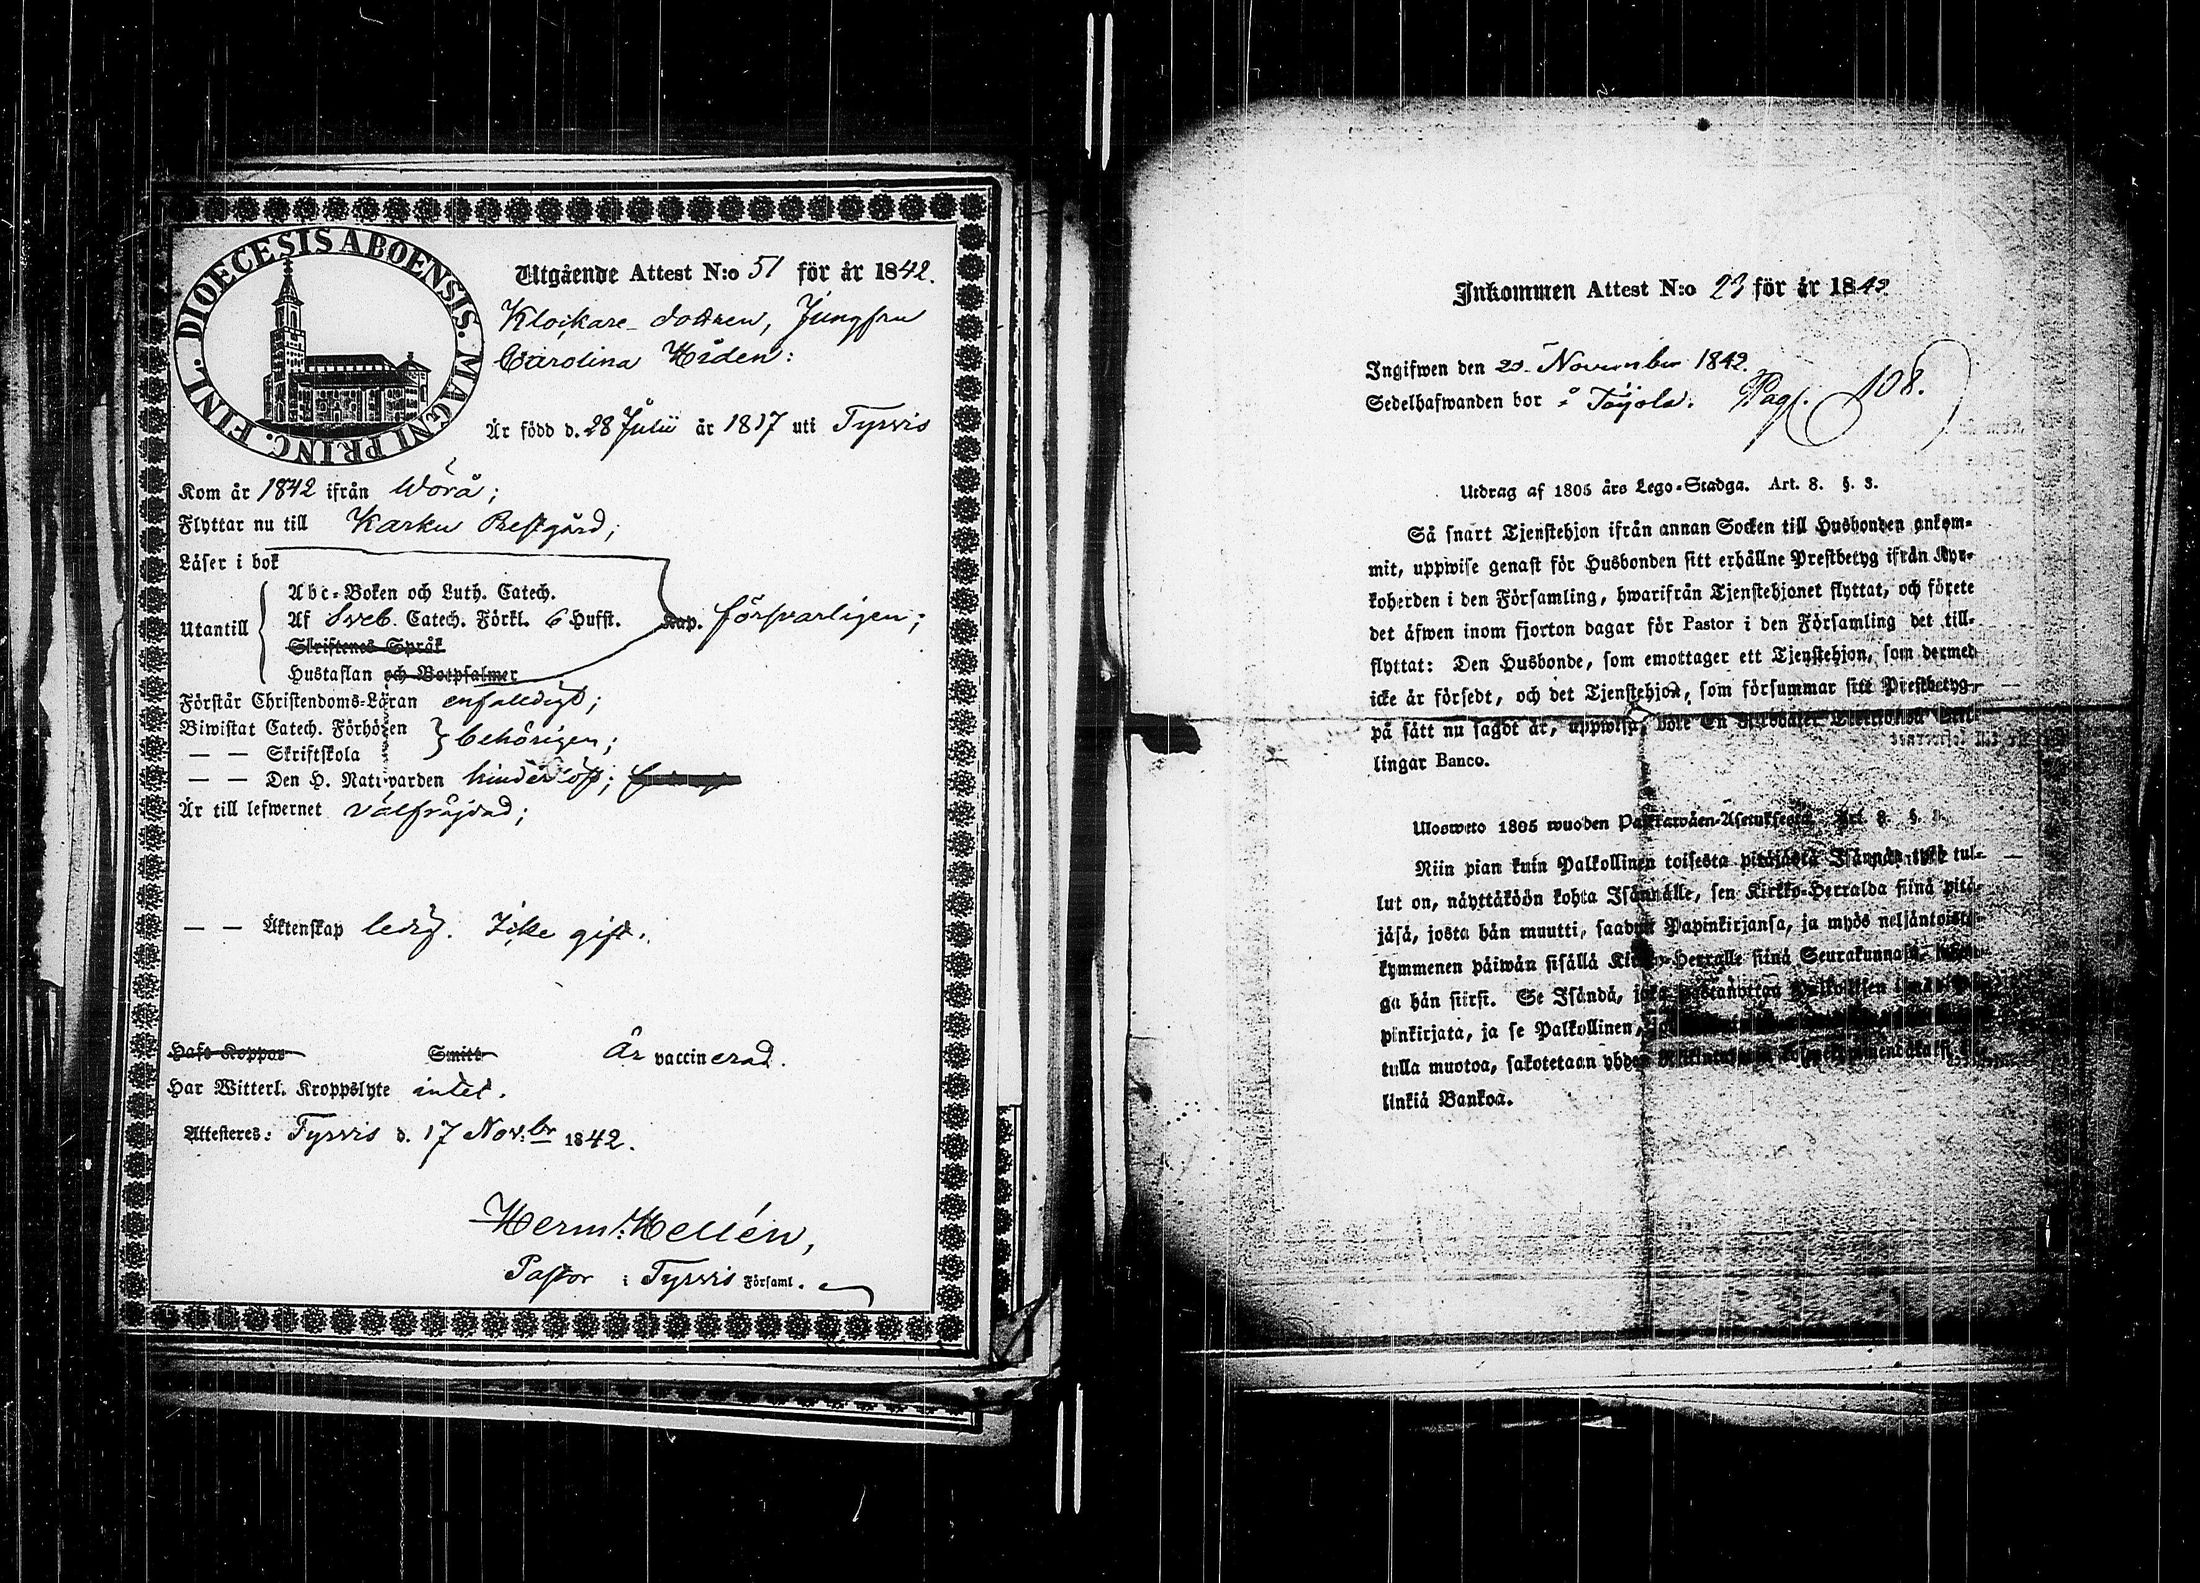 FINL. DIOECESIS ABOENSIS. MAGNI PRINC.
Utgående Attest N:o 51 för år 1842.
Klockare-dottren, Jungfru
Carolina Hidén:
Är född d. 28 Julii år 1817 uti Tyrvis
Kom år 1842 ifrån Wörå;
Flyttar nu till Karku Prestgård;
Läser i bok
Utantill
Abc-Boken och Luth. Catech.
Af Sveb. Catech. Förkl. 6 Hufst. Kap. försvarligen;
Skriftenes Språk
Hustaflan och Botpsalmer
Förstår Christendoms-Läran enfaldigt;
Biwistat Catech. Förhören
— — Skriftskola
behörigen;
— — Den H. Nattvarden hinderlöst;
Är till lefwernet välfräjdad;
— — Äktenskap ledig. Icke gift.
Haft Koppor Smitt Är vaccinerad.
Har Witterl. Kroppslyte intet.
Attesteres: Tyrvis d. 17 Nov:br 1842.
Herm: Hellén,
Pastor i Tyrvis Församl.
Inkommen Attest N:o 23 för år 1842.
Ingifwen den 20 November 1842.
Sedelhafwanden bor å Töyola. Pag. 108.
Utdrag af 1805 års Lego-Stadga. Art. 8. §. 3.
Så snart Tjenstehjon ifrån annan Socken till Husbonden ankom-
mit, uppwise genast för Husbonden sitt erhållne Prestbetyg ifrån Kyr-
koherden i den Församling, hwarifrån Tjenstehjonet flyttat, och förete
det äfwen inom fjorton dagar för Pastor i den Församling det till-
flyttat: Den Husbonde, som emottager ett Tjenstehjon, som dermed
icke är försedt, och det Tjenstehjon, som försummar sitt Prestbetyg,
på sätt nu sagdt är, uppwisa, böte En Riksdaler
lingar Banco.
Ulosweto 1805 wuoden Palkkawäen-Asetuksesta. Art. 8. §. 3.
Niin pian kuin Palkollinen toisesta pitäjästä Isännän tykö tul-
lut on, näyttäköön kohta Isännälle, sen Kirkko-Herralda siinä pitä-
jäsä, josta hän muutti, saadun Papinkirjansa, ja myös neljäntoista-
kymmenen päiwän sisällä Kirkko-Herralle siinä Seurakunnasa,
ga hän siirsi. Se Isändä, joka
pinkirjata, ja se Palkollinen,
tulla muotoa, sakotetaan yhden
linkiä Bankoa.